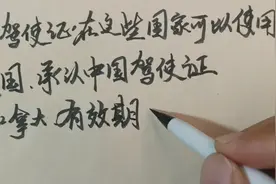 驾使证·在这些国家可以使用
国、承认中国驾使证
拿大 有效期